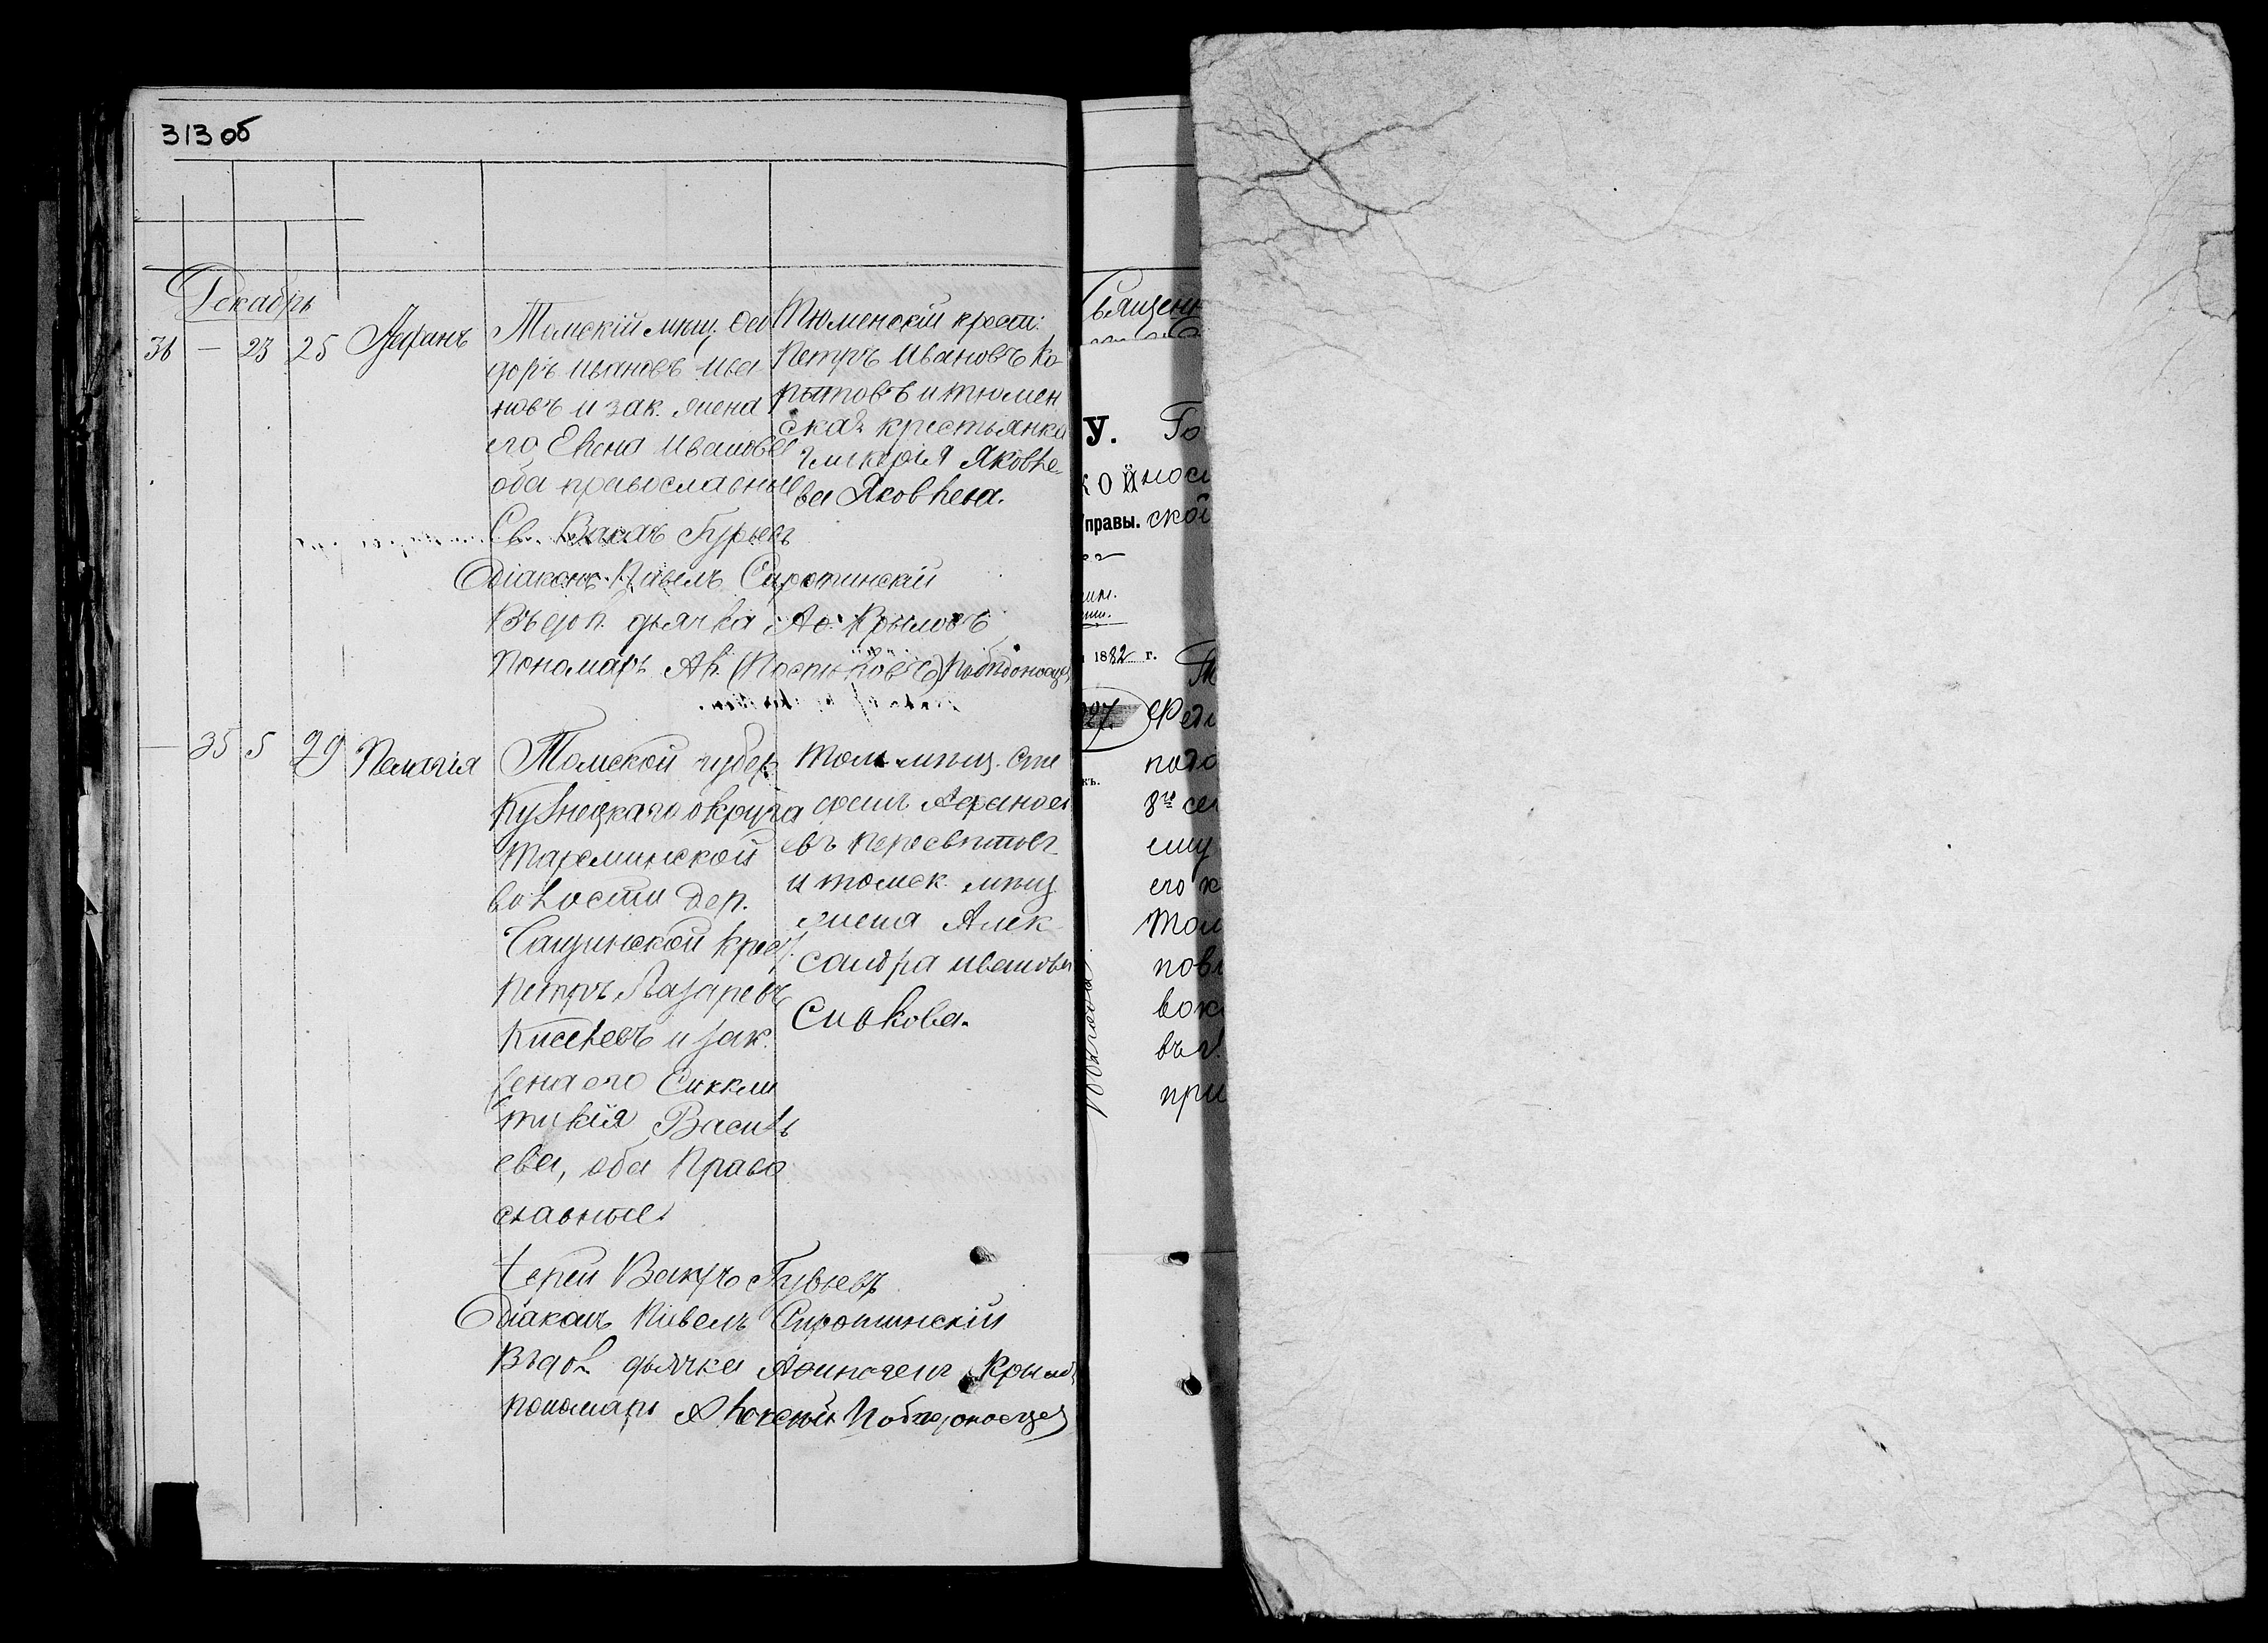 313 об
Декабрь
36 — 23 25 Стефанъ
Томскій мѣщ. Ѳео
доръ Ивановъ Ива
новъ и зак. жена
его Елена Иванов
оба православные
Тюменскій крест:
Петръ Ивановъ Ко
пытовъ и тюмен
ская крестьянка
Гликерія Яковле
ва Яковлева.
Св. Вакхъ Гурьевъ
Діаконъ Павелъ Сиротинскій
Въ дол. дьячка Аѳ. Крыловъ
Пономарь Ал. (Поспѣловъ) Побѣдоносцев
— 35 5 29 Пелагія
Томской губер.
Кузнецкаго округа
Тарсминской
волости дер.
Сащинской крест.
Петръ Лазаревъ
Киселевъ и зак.
жена его Сикли
тикія Василь
ева, оба право
славные.
Том. мѣщ. Сте
фанъ
въ Пересвѣтовъ
и томск. мѣщ.
жена Алек
сандра Иванова
Сивкова.
Іерей Вакхъ Гурьевъ
Діаконъ Павелъ Сиротинскій
Въ дол. дьячка Аѳиногенъ Крылов
пономарь Алексѣй Побѣдоносцев
Священн
У.
Го
КОЙ
носл
Управы.
ской
1882 г.
927
Ѳед
къ.
подо
8го сен
ему
его к
Том
пов
вок
въ
при